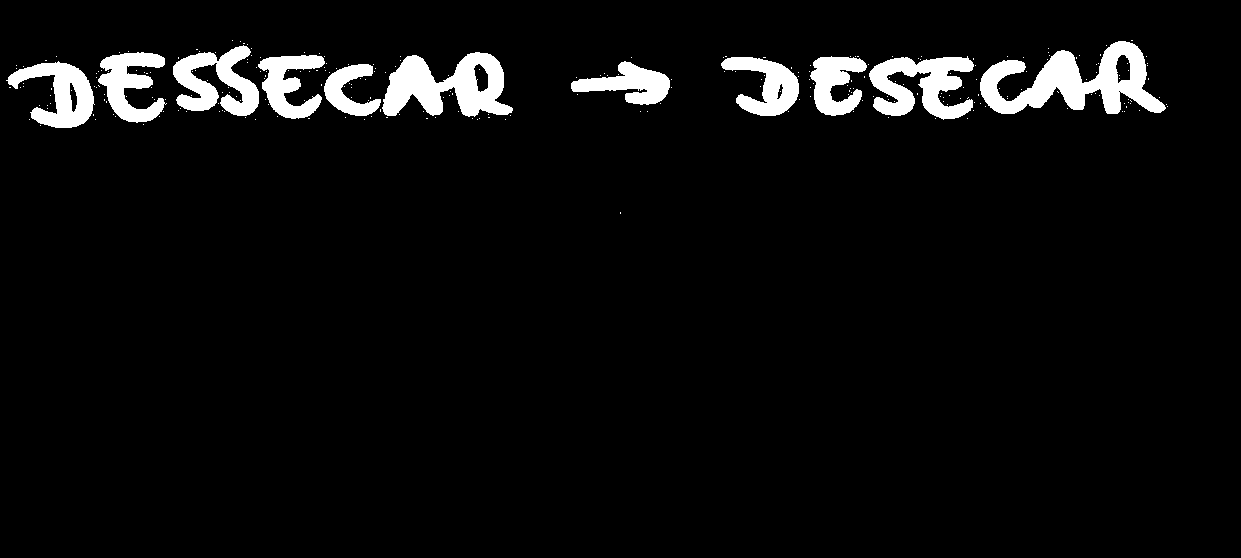 DESSECAR → DESECAR